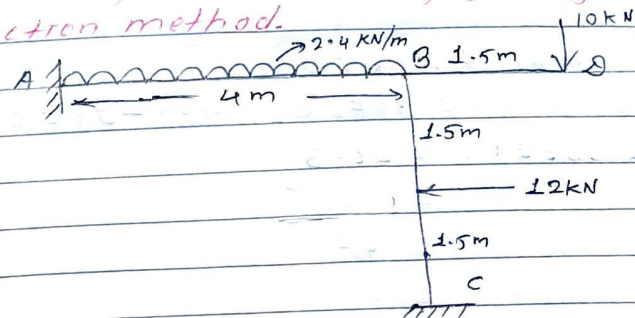 ction method.
10KN
2.4 KN/m
A
B 1.5m
D
4m
1.5m
12KN
1.5m
C